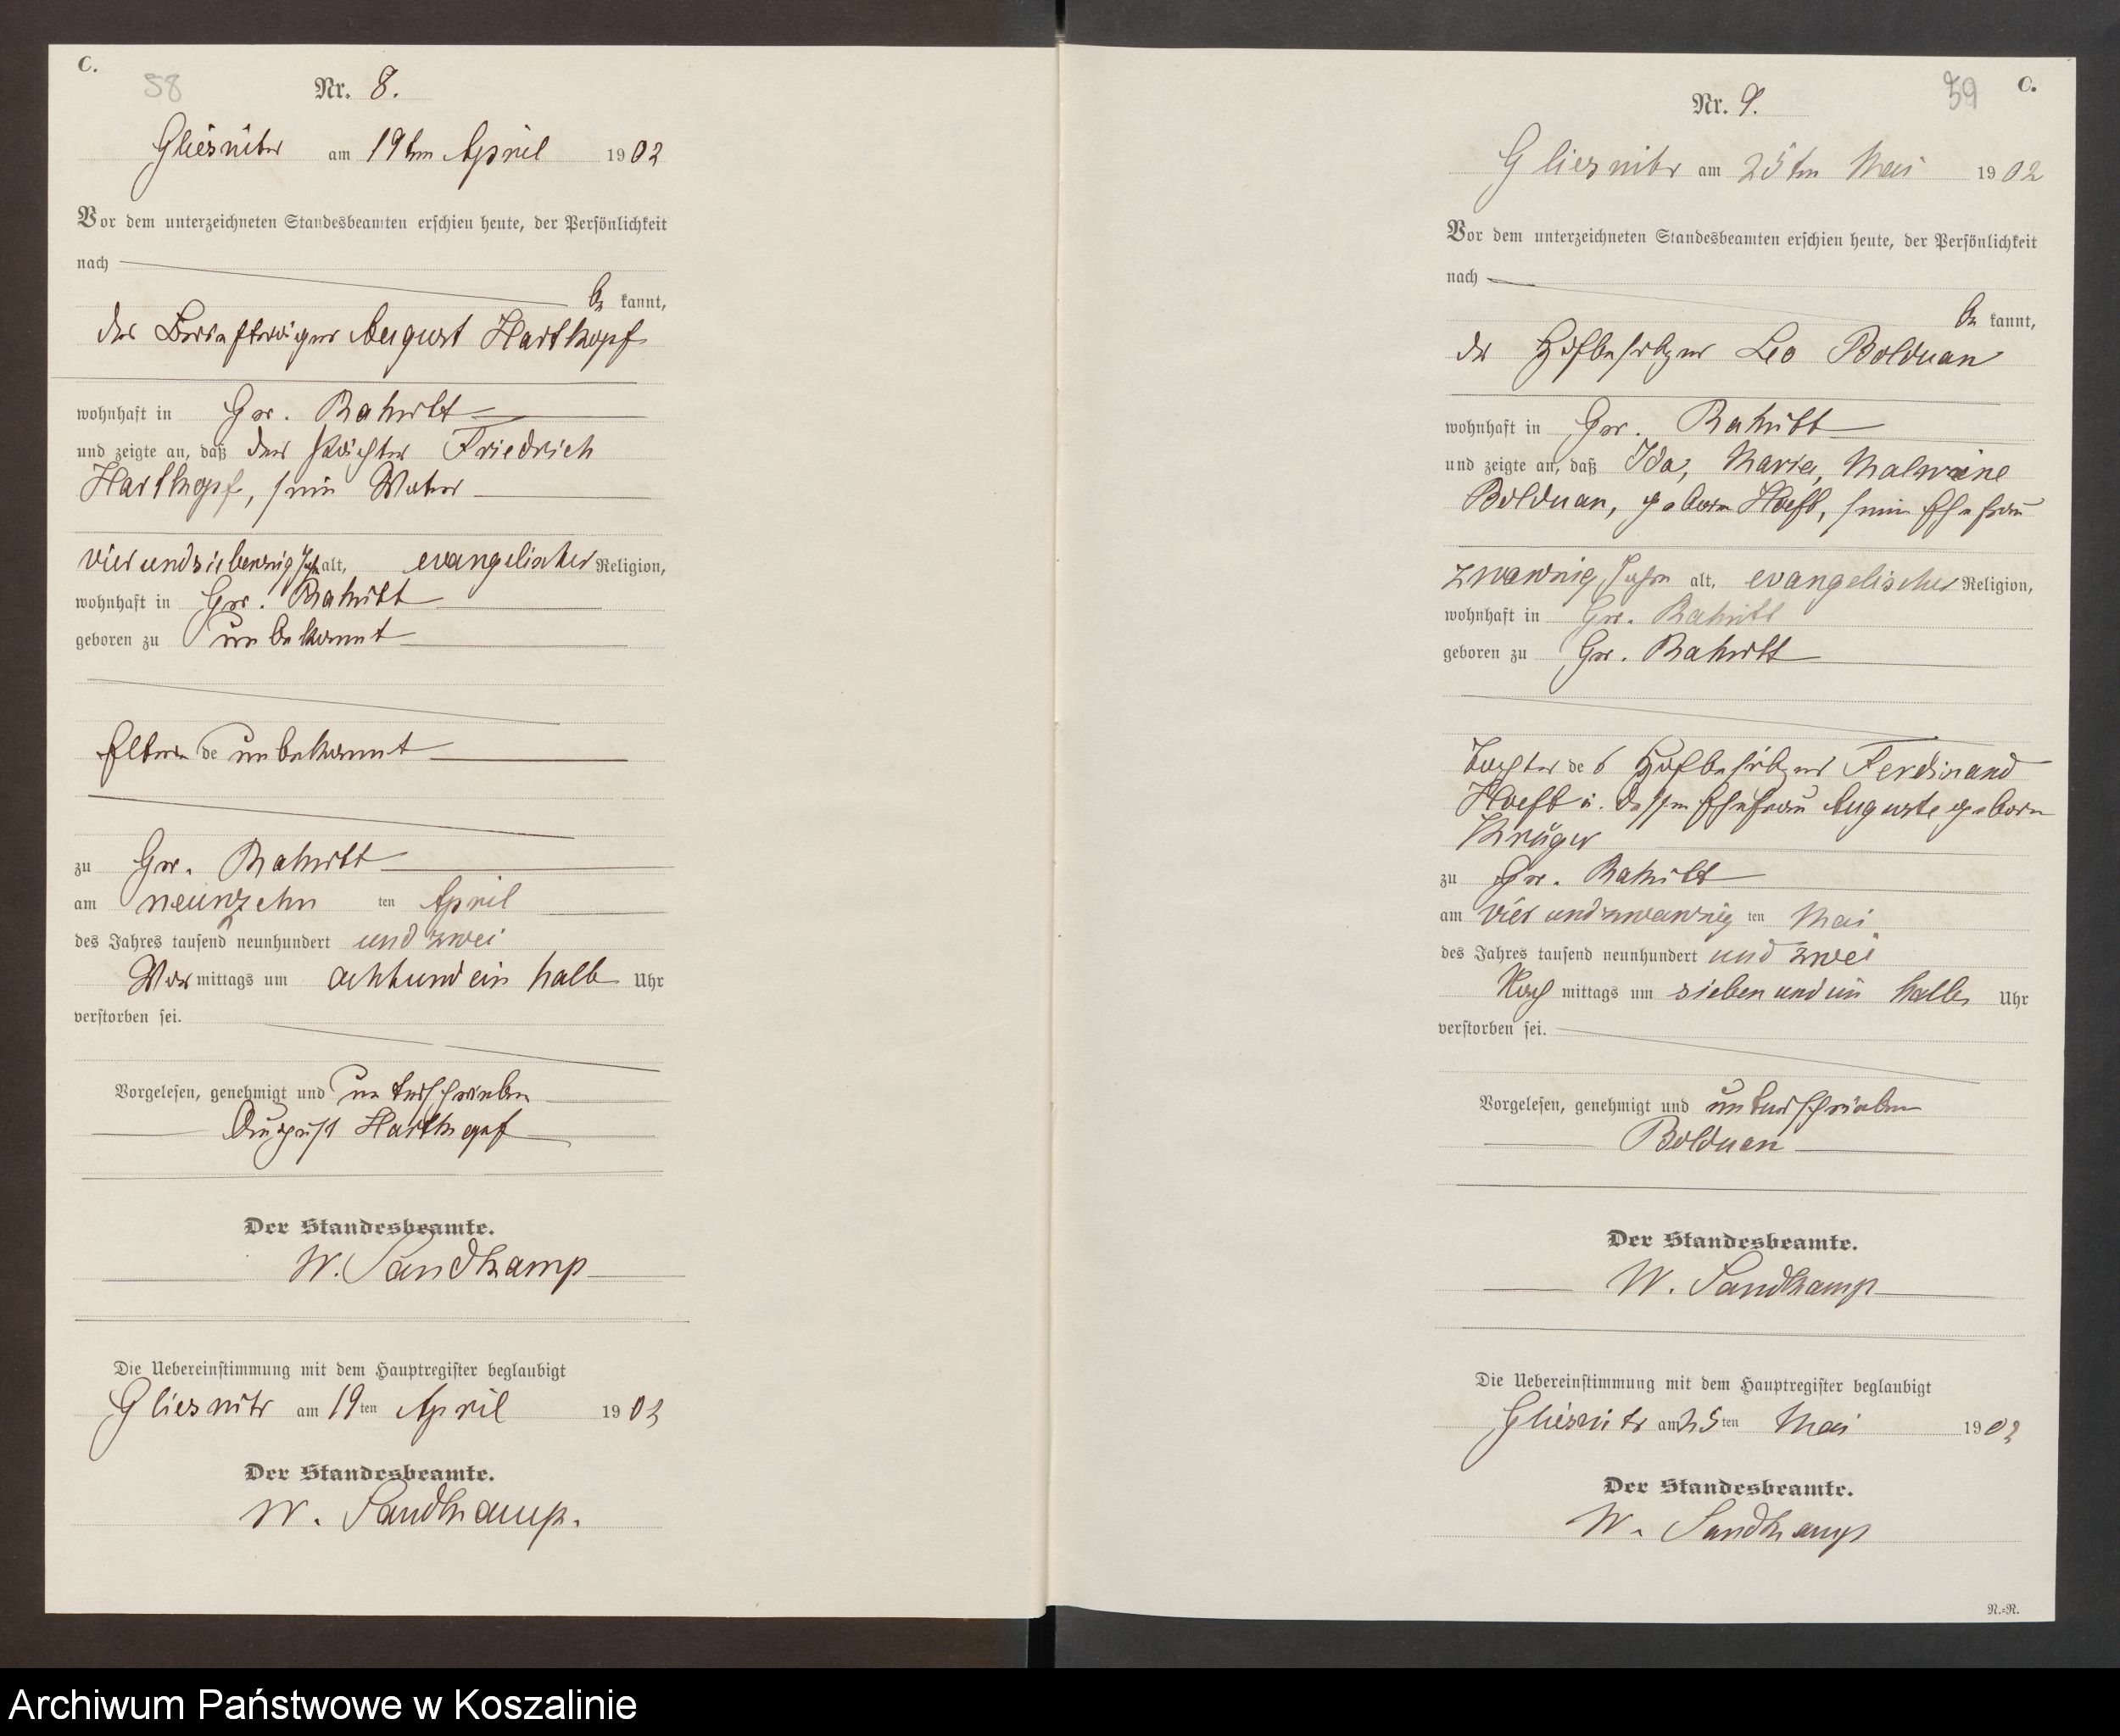 C.
58
Nr. 8.
Gliesnitz am 19ten April 1902
Vor dem unterzeichneten Standesbeamten erschien heute, der Persönlichkeit
nach
be kannt,
der Briefträger August Hartkopf
wohnhaft in Gr. Rakitt
und zeigte an, daß der Pächter Friedrich
Hartkopf, sein Vater
vierundsiebenzig Jahre alt, evangelischer Religion,
wohnhaft in Gr. Rakitt
geboren zu unbekannt
Eltern de unbekannt
zu Gr. Rakitt
am neunzehn ten April
des Jahres tausend neunhundert und zwei
Vor mittags um achtundein halb Uhr
verstorben sei.
Vorgelesen, genehmigt und unterschrieben
August Hartkopf
Der Standesbeamte.
W. Sandkamp
Die Uebereinstimmung mit dem Hauptregister beglaubigt
Gliesnitz am 19ten April 1902
Der Standesbeamte.
W. Sandkamp.
59
C.
Nr. 9.
Gliesnitz am 25ten Mai 1902
Vor dem unterzeichneten Standesbeamten erschien heute, der Persönlichkeit
nach
be kannt,
der Hofbesitzer Leo Bolduan
wohnhaft in Gr. Rakitt
und zeigte an, daß Ida, Maria, Malwine
Bolduan, geborne Hoeft, seine Ehefrau
zwanzig Jahre alt, evangelischer Religion,
wohnhaft in Gr. Rakitt
geboren zu Gr. Rakitt
Tochter des Hofbesitzers Ferdinand
Hoeft u. dessen Ehefrau Auguste geborne
Krüger
zu Gr. Rakitt
am vierundzwanzig ten Mai
des Jahres tausend neunhundert und zwei
Nach mittags um siebenundein halb Uhr
verstorben sei.
Vorgelesen, genehmigt und unterschrieben
Bolduan
Der Standesbeamte.
W. Sandkamp
Die Uebereinstimmung mit dem Hauptregister beglaubigt
Gliesnitz am 25ten Mai 1902
Der Standesbeamte.
W. Sandkamp
N.=R.
Archiwum Państwowe w Koszalinie